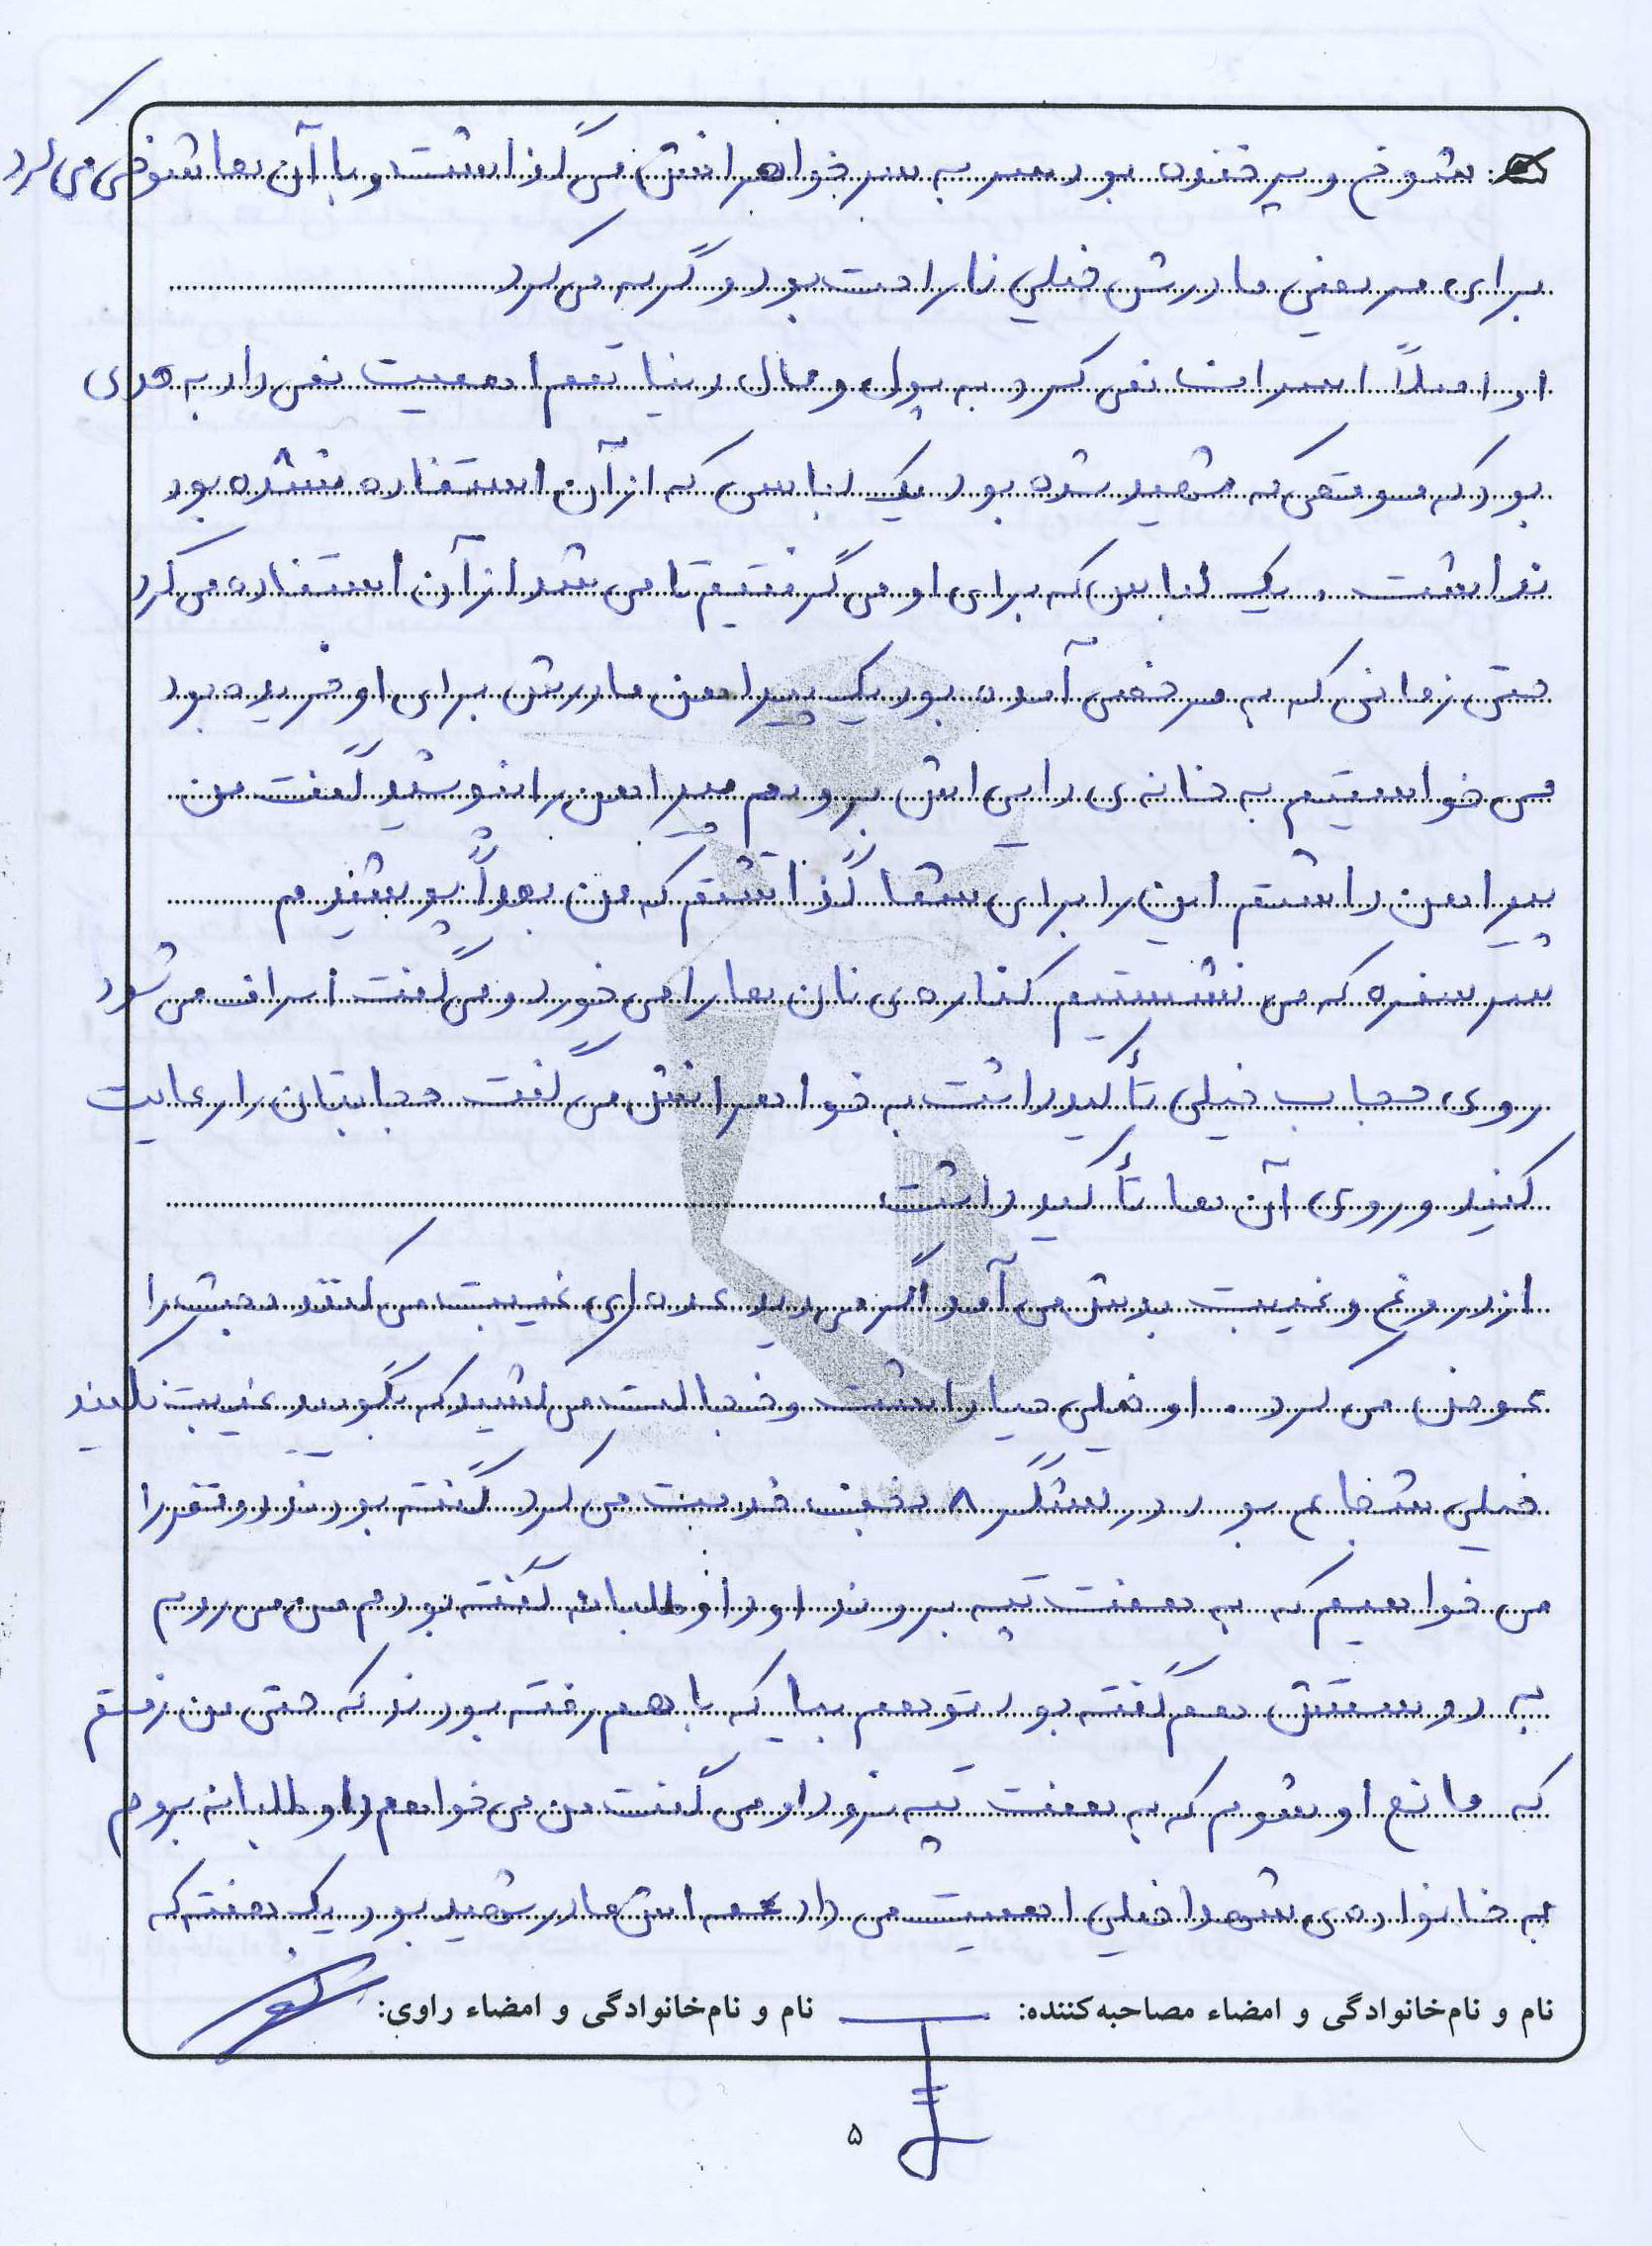 شوخ و پر خنده بود سر به سر خواهرانش می گذاشت و با آن ها شوخی می کرد
برای مریضی مادرش خیلی ناراحت بود و گریه می کرد
او اصلاً اسراف نمی کرد به پول و مال دنیا هم اهمیت نمی داد به حدی
بود که موقعی که شهید شده بود یک لباس که از آن استفاده نشده بود
نداشت . یک لباس که برای او می گرفتیم تا می شد از آن استفاده می کرد
حتی زمانی که به مرخصی آمده بود یک پیراهن مادرش برای او خریده بود
می خواستیم به خانه ی دایی اش برویم پیراهن را نپوشید گفت من
پیراهن داشتم این را برای شما گذاشتم که من بعداً بپوشیدم
سر سفره که می نشستیم کناره ی نان ها را می خورد و می گفت اسراف می شود
روی حجاب خیلی تأکید داشت به خواهرانش می گفت حجابتان را رعایت
کنید و روی آن ها تأکید داشت
از دروغ و غیبت بدش می آمد اگر می دید عده ای غیبت می کنند بحث را
عوض می کرد . او خیلی حیا داشت و خجالت می کشید که بگویید غیبت نکنید
خیلی شجاع بود در لشگر ۸ نجف خدمت می کرد گفته بودند دو نفر را
می خواهیم که به هفت تپه بروند او داوطلبانه گفته بودم من می روم
به دوستش هم گفته بود تو هم بیا که با هم رفته بودند که حتی من رفتم
که مانع او شوم که به هفت تپه نرود او می گفت من می خواهم داوطلبانه بروم
به خانواده ی شهدا خیلی اهمیت می داد عمه اش مادر شهید بود یک هفته که
نام و نام‌خانوادگی و امضاء مصاحبه‌کننده: نام و نام‌خانوادگی و امضاء راوی:
۵